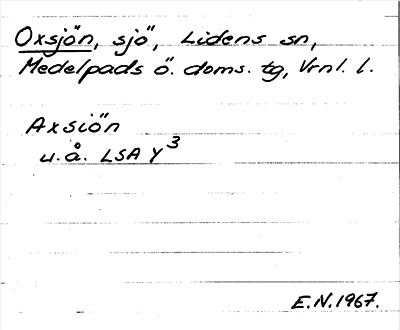 Oxsjön, sjö, Lidens sn,
Medelpads ö. doms. tg, Vrnl. l.
Axsiön
u.å. LSA Y³
E.N. 1967.